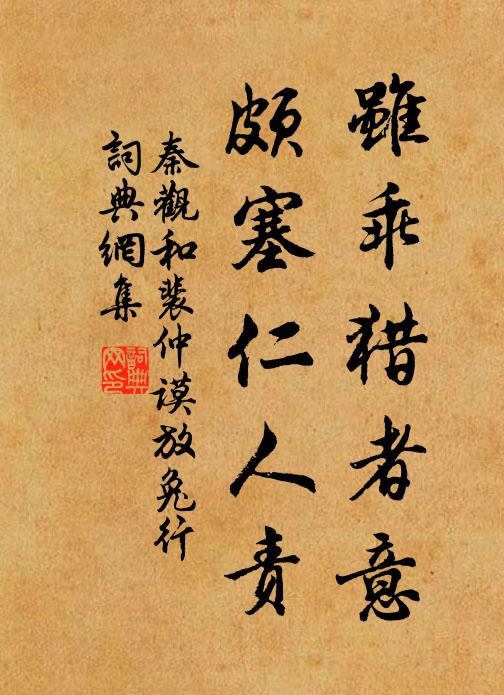 雖乖猎者意
頗塞仁人責
秦觀和裴仲謨放兔行
詞典網集
詞典網印